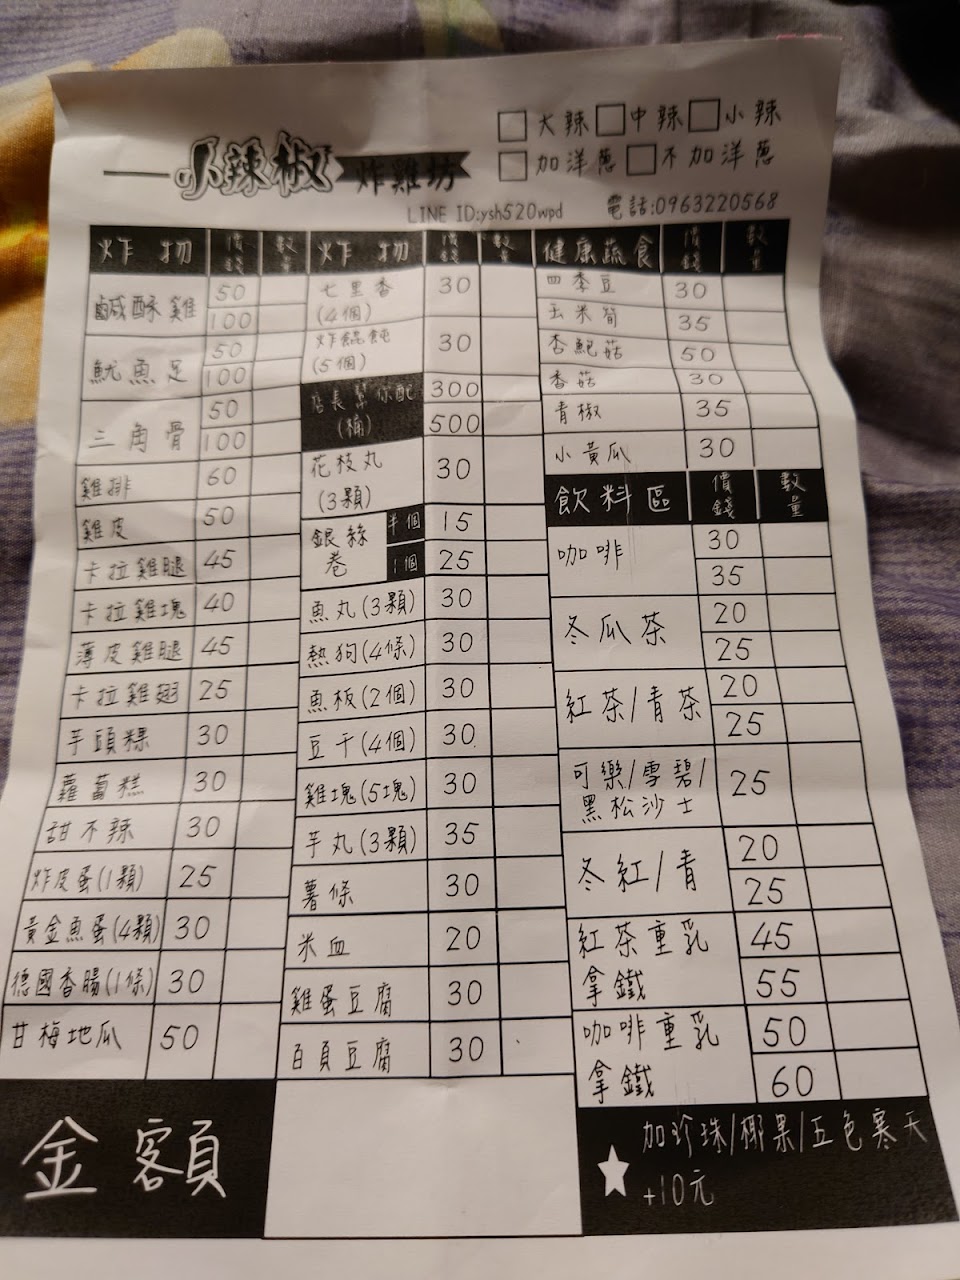 大辣 中辣 小辣
加洋蔥 不加洋蔥
小辣椒 炸雞坊
LINE ID:ysh520wpd 電話:0963220568
炸物 價錢 數量
鹹酥雞 50
100
魷魚足 50
100
三角骨 50
100
雞排 60
雞皮 50
卡拉雞腿 45
卡拉雞塊 40
薄皮雞腿 45
卡拉雞翅 25
芋頭粿 30
蘿蔔糕 30
甜不辣 30
炸皮蛋(1顆) 25
黃金魚蛋(4顆) 30
德國香腸(1條) 30
甘梅地瓜 50
炸物 價錢 數量
七里香 30
(4個)
炸餛飩 30
(5個)
店長幫你配 300
(桶) 500
花枝丸 30
(3顆)
銀絲卷 半個 15
1個 25
魚丸(3顆) 30
熱狗(4條) 30
魚板(2個) 30
豆干(4個) 30
雞塊(5塊) 30
芋丸(3顆) 35
薯條 30
米血 20
雞蛋豆腐 30
百頁豆腐 30
健康蔬食 價錢 數量
四季豆 30
玉米筍 35
杏鮑菇 50
香菇 30
青椒 35
小黃瓜 30
飲料區 價錢 數量
咖啡 30
35
冬瓜茶 20
25
紅茶/青茶 20
25
可樂/雪碧/ 25
黑松沙士
冬紅/青 20
25
紅茶重乳 45
拿鐵 55
咖啡重乳 50
拿鐵 60
金額
加珍珠/椰果/五色寒天
+10元